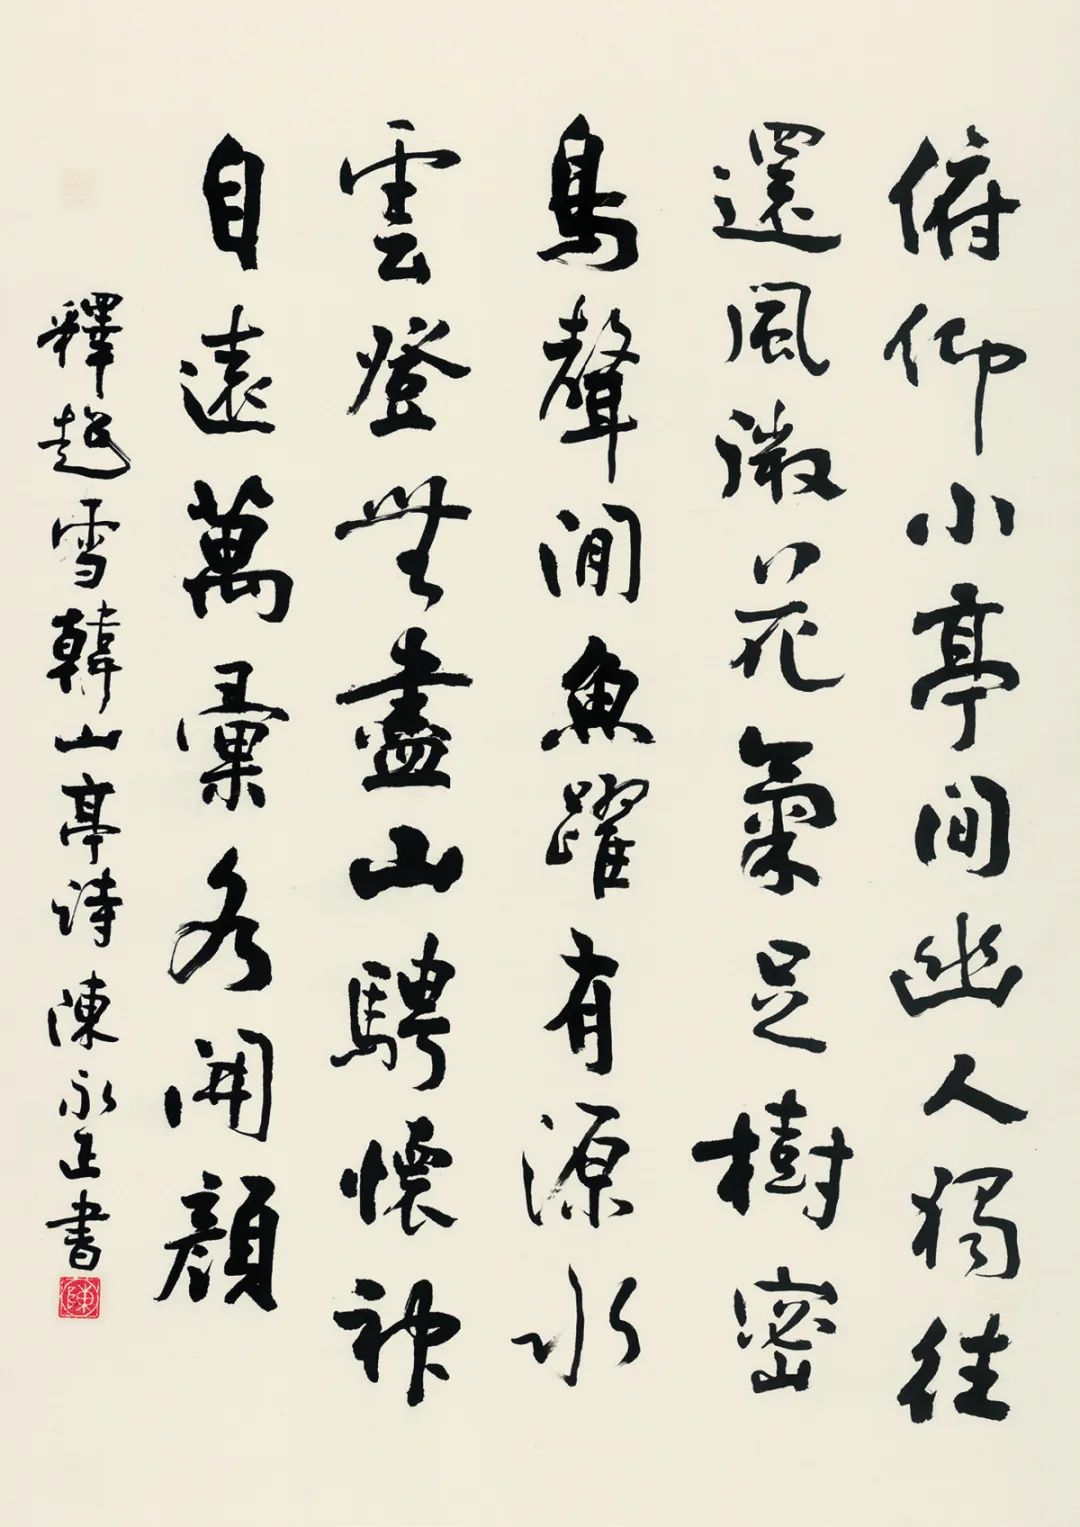 俯仰小亭間幽人獨往
還風微花氣足樹密
鳥聲閒魚躍有源水
雲燈無盡山騁懷神
自遠萬彙各開顏
釋超雪韓山亭詩陳永正書
陳